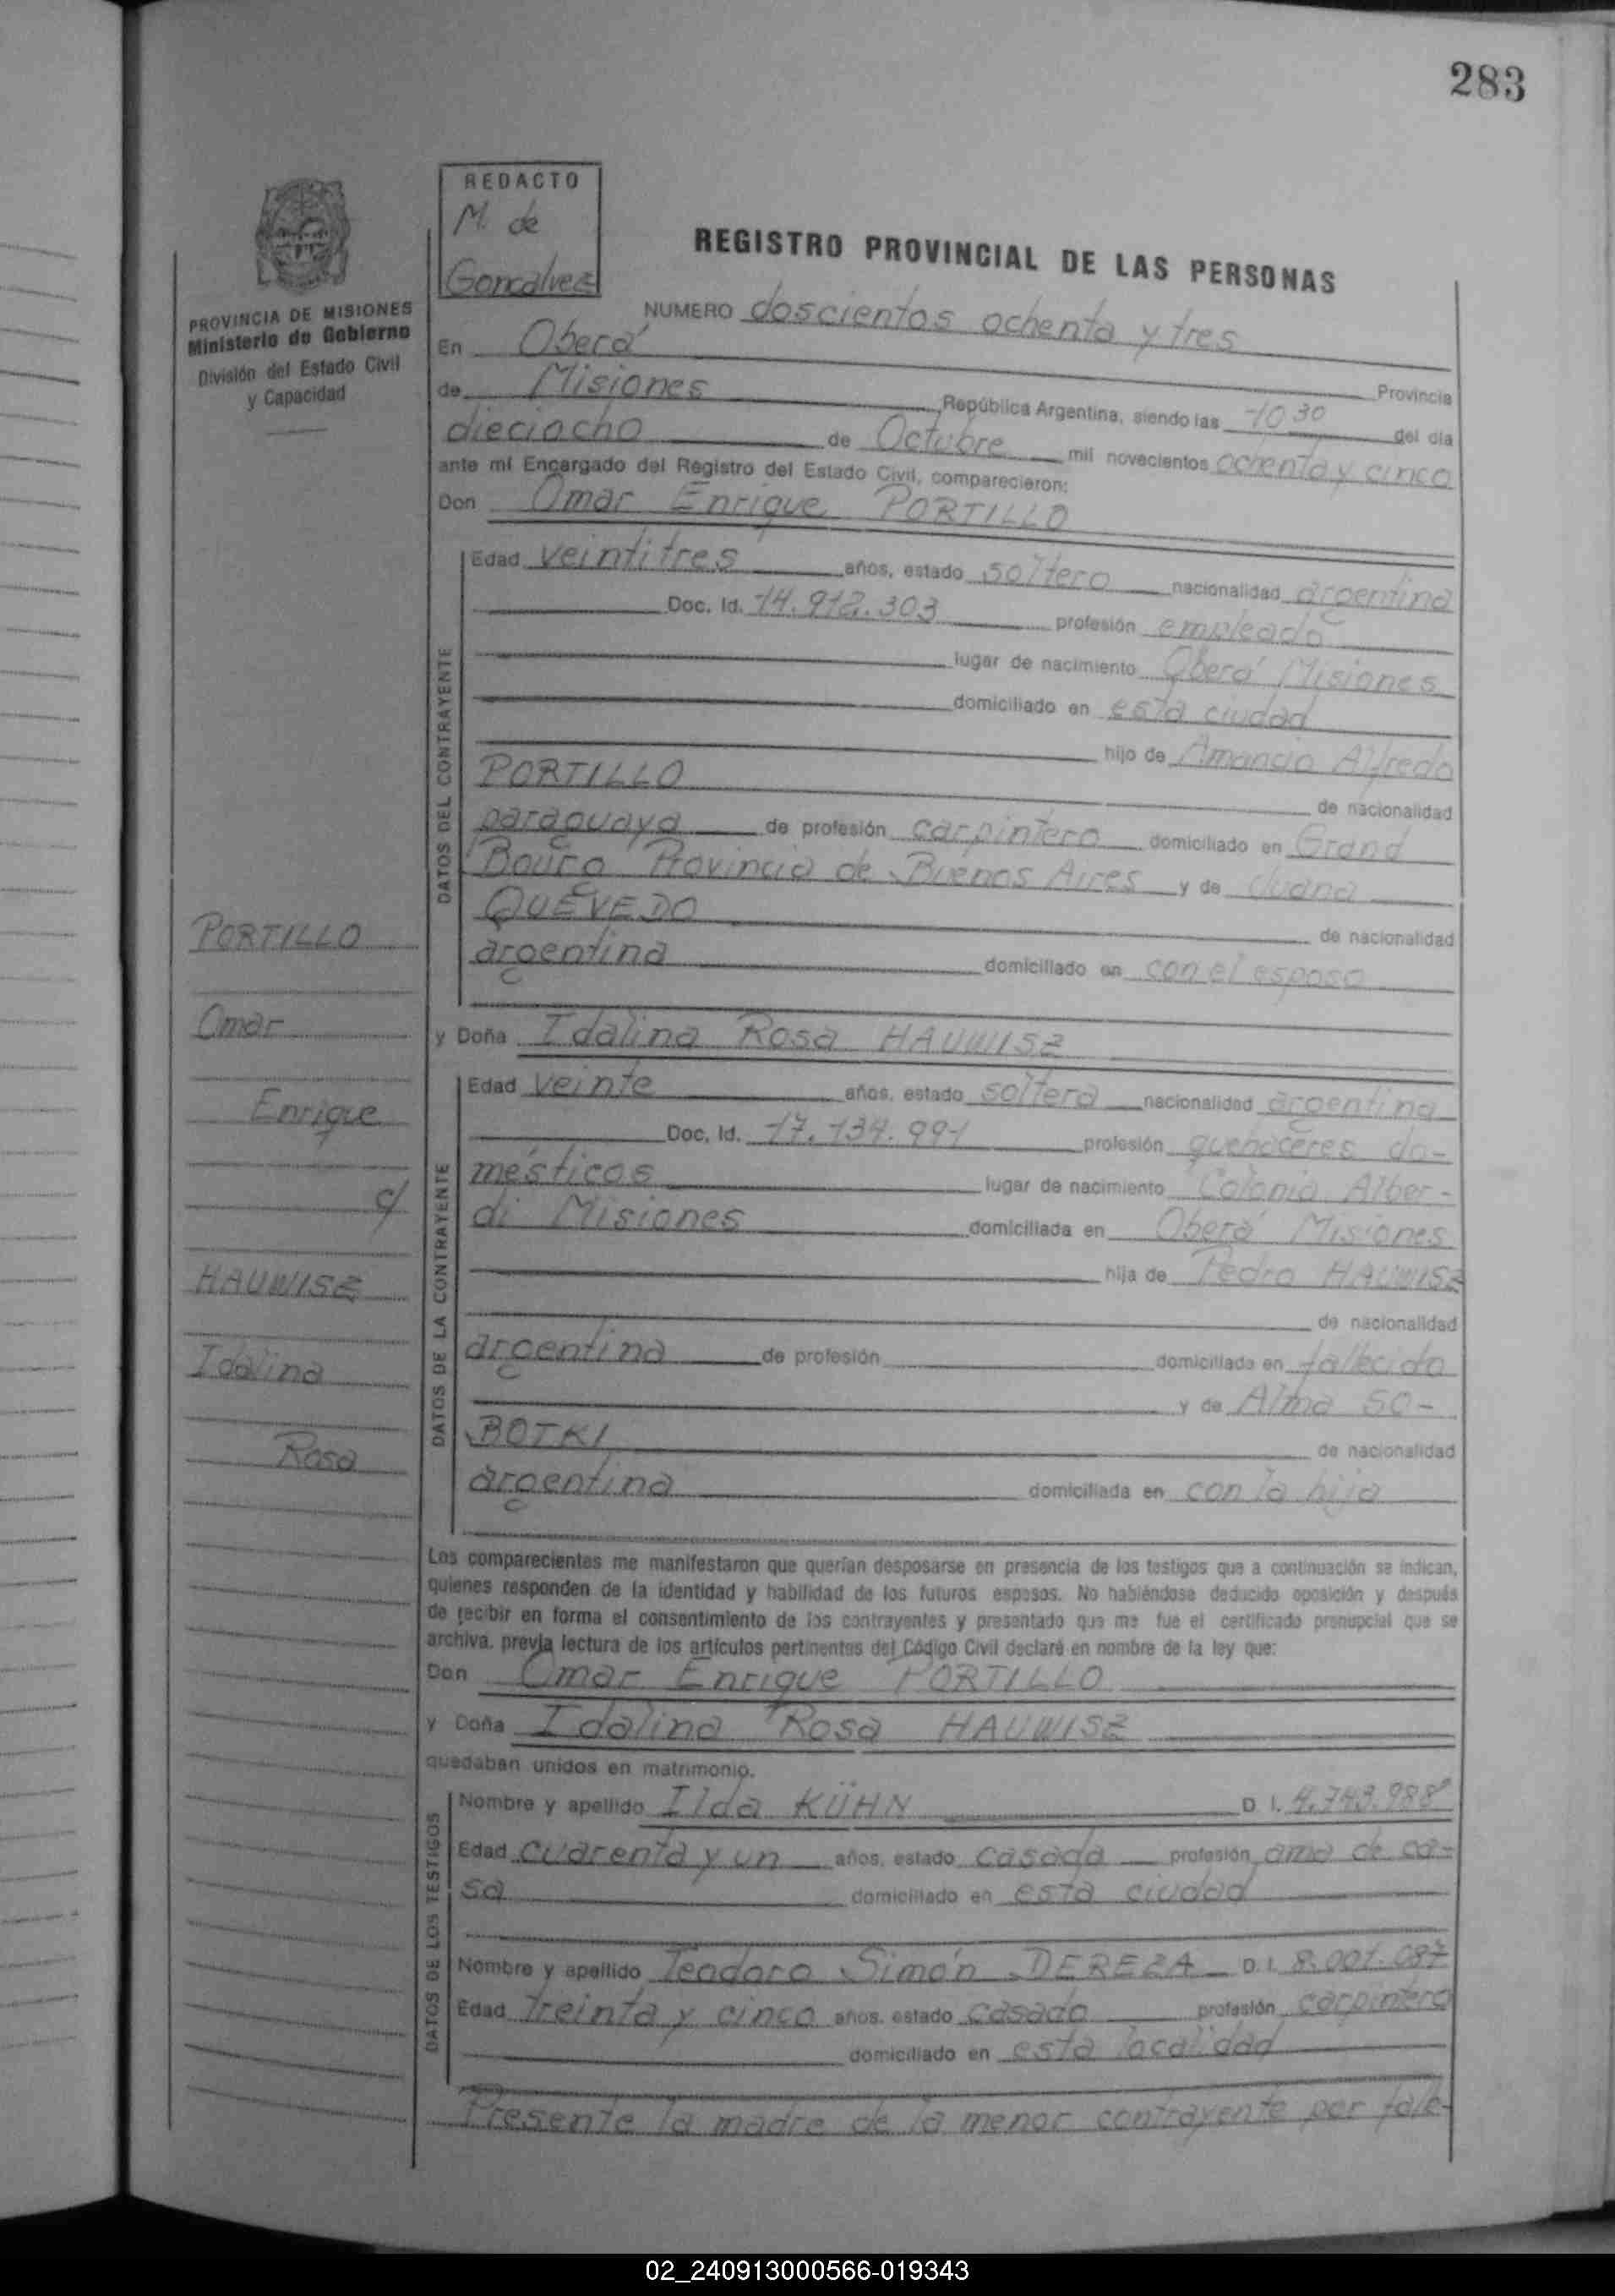 283
REDACTO
M. de
Goncalvez
REGISTRO PROVINCIAL DE LAS PERSONAS
PROVINCIA DE MISIONES
Ministerio de Gobierno
División del Estado Civil
y Capacidad
NUMERO doscientos ochenta y tres
En Oberá Provincia
de Misiones República Argentina, siendo las 10 30 del día
dieciocho de Octubre mil novecientos ochenta y cinco
ante mí Encargado del Registro del Estado Civil, comparecieron:
Don Omar Enrique PORTILLO
DATOS DEL CONTRAYENTE
Edad veintitres años, estado soltero nacionalidad argentina
Doc. Id. 14.912.303 profesión empleado
lugar de nacimiento Oberá Misiones
domiciliado en esta ciudad
hijo de Amancio Alfredo
PORTILLO de nacionalidad
paraguaya de profesión carpintero domiciliado en Grand
Bourg Provincia de Buenos Aires y de Juana
QUEVEDO de nacionalidad
argentina domiciliado en con el esposo
y Doña Idalina Rosa HAUWISZ
DATOS DE LA CONTRAYENTE
Edad veinte años, estado soltera nacionalidad argentina
Doc. Id. 17.134.991 profesión quehaceres do-
mésticos lugar de nacimiento Colonia Alber-
di Misiones domiciliada en Oberá Misiones
hija de Pedro HAUWISZ
de nacionalidad
argentina de profesión domiciliado en fallecido
y de Alma SO-
BOTKI de nacionalidad
argentina domiciliada en con la hija
PORTILLO
Omar
Enrique
c/
HAUWISZ
Idalina
Rosa
Los comparecientes me manifestaron que querían desposarse en presencia de los testigos que a continuación se indican,
quienes responden de la identidad y habilidad de los futuros esposos. No habiéndose deducido oposición y después
de recibir en forma el consentimiento de los contrayentes y presentado que me fue el certificado prenupcial que se
archiva, previa lectura de los artículos pertinentes del Código Civil declaré en nombre de la ley que:
Don Omar Enrique PORTILLO
y Doña Idalina Rosa HAUWISZ
quedaban unidos en matrimonio.
DATOS DE LOS TESTIGOS
Nombre y apellido Ilda KÜHN D. I. 4.743.988
Edad cuarenta y un años, estado casada profesión ama de ca-
sa domiciliado en esta ciudad
Nombre y apellido Teodoro Simón DEREZA D. I. 8.001.087
Edad treinta y cinco años, estado casado profesión carpintero
domiciliado en esta localidad
Presente la madre de la menor contrayente por falle-
02_240913000566-019343